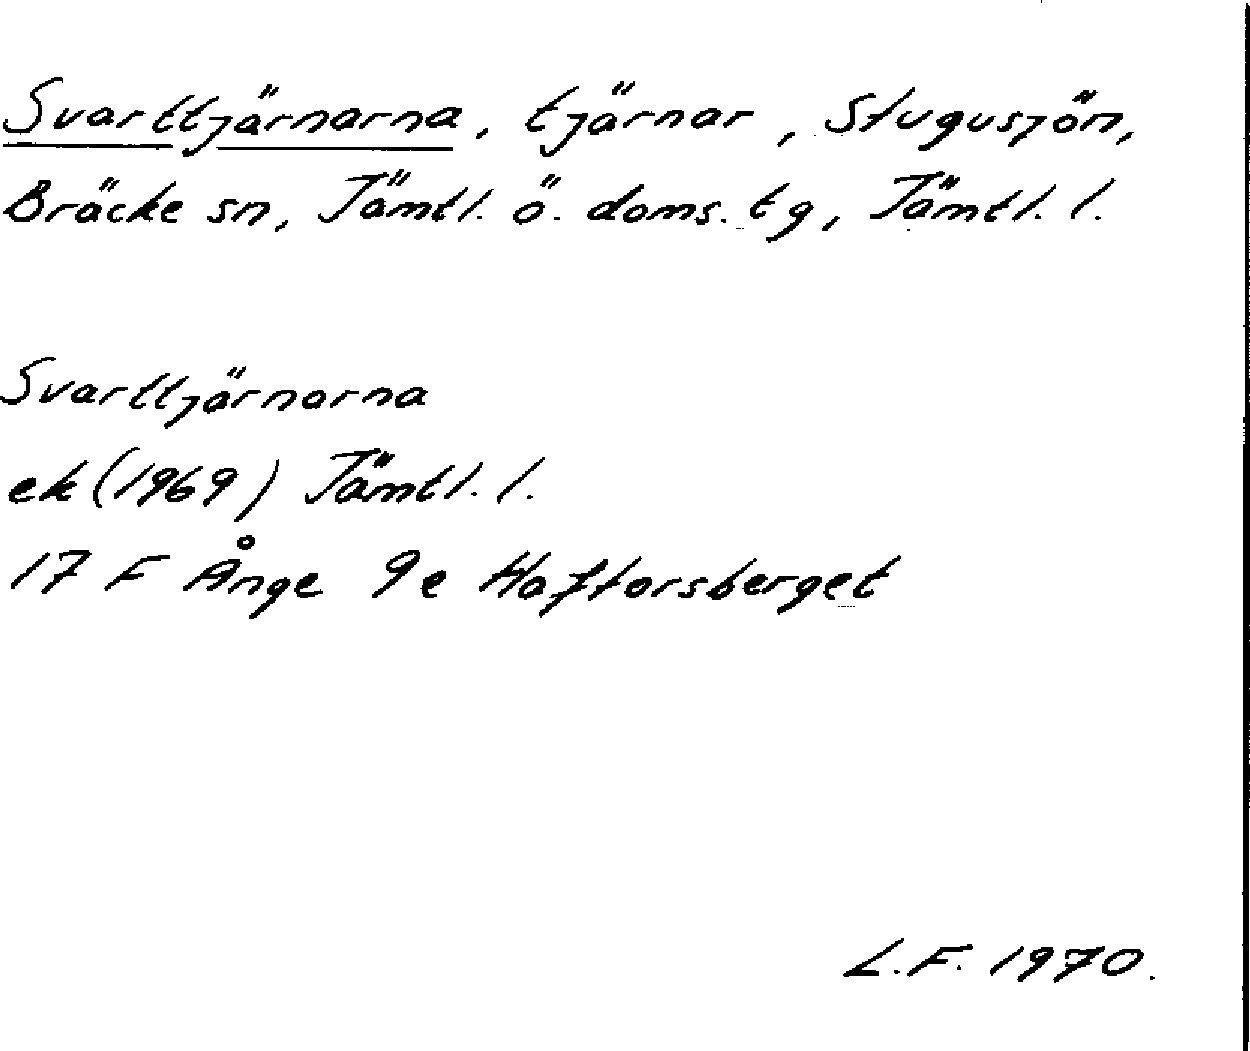 Svarttjärnarna, tjärnar, Stugusjön,
Bräcke sn, Jämtl. ö. doms. tg, Jämtl. l.
Svarttjärnarna
ek (1969) Jämtl. l.
17 F Ånge 9e Haftorsberget
L.F. 1970.